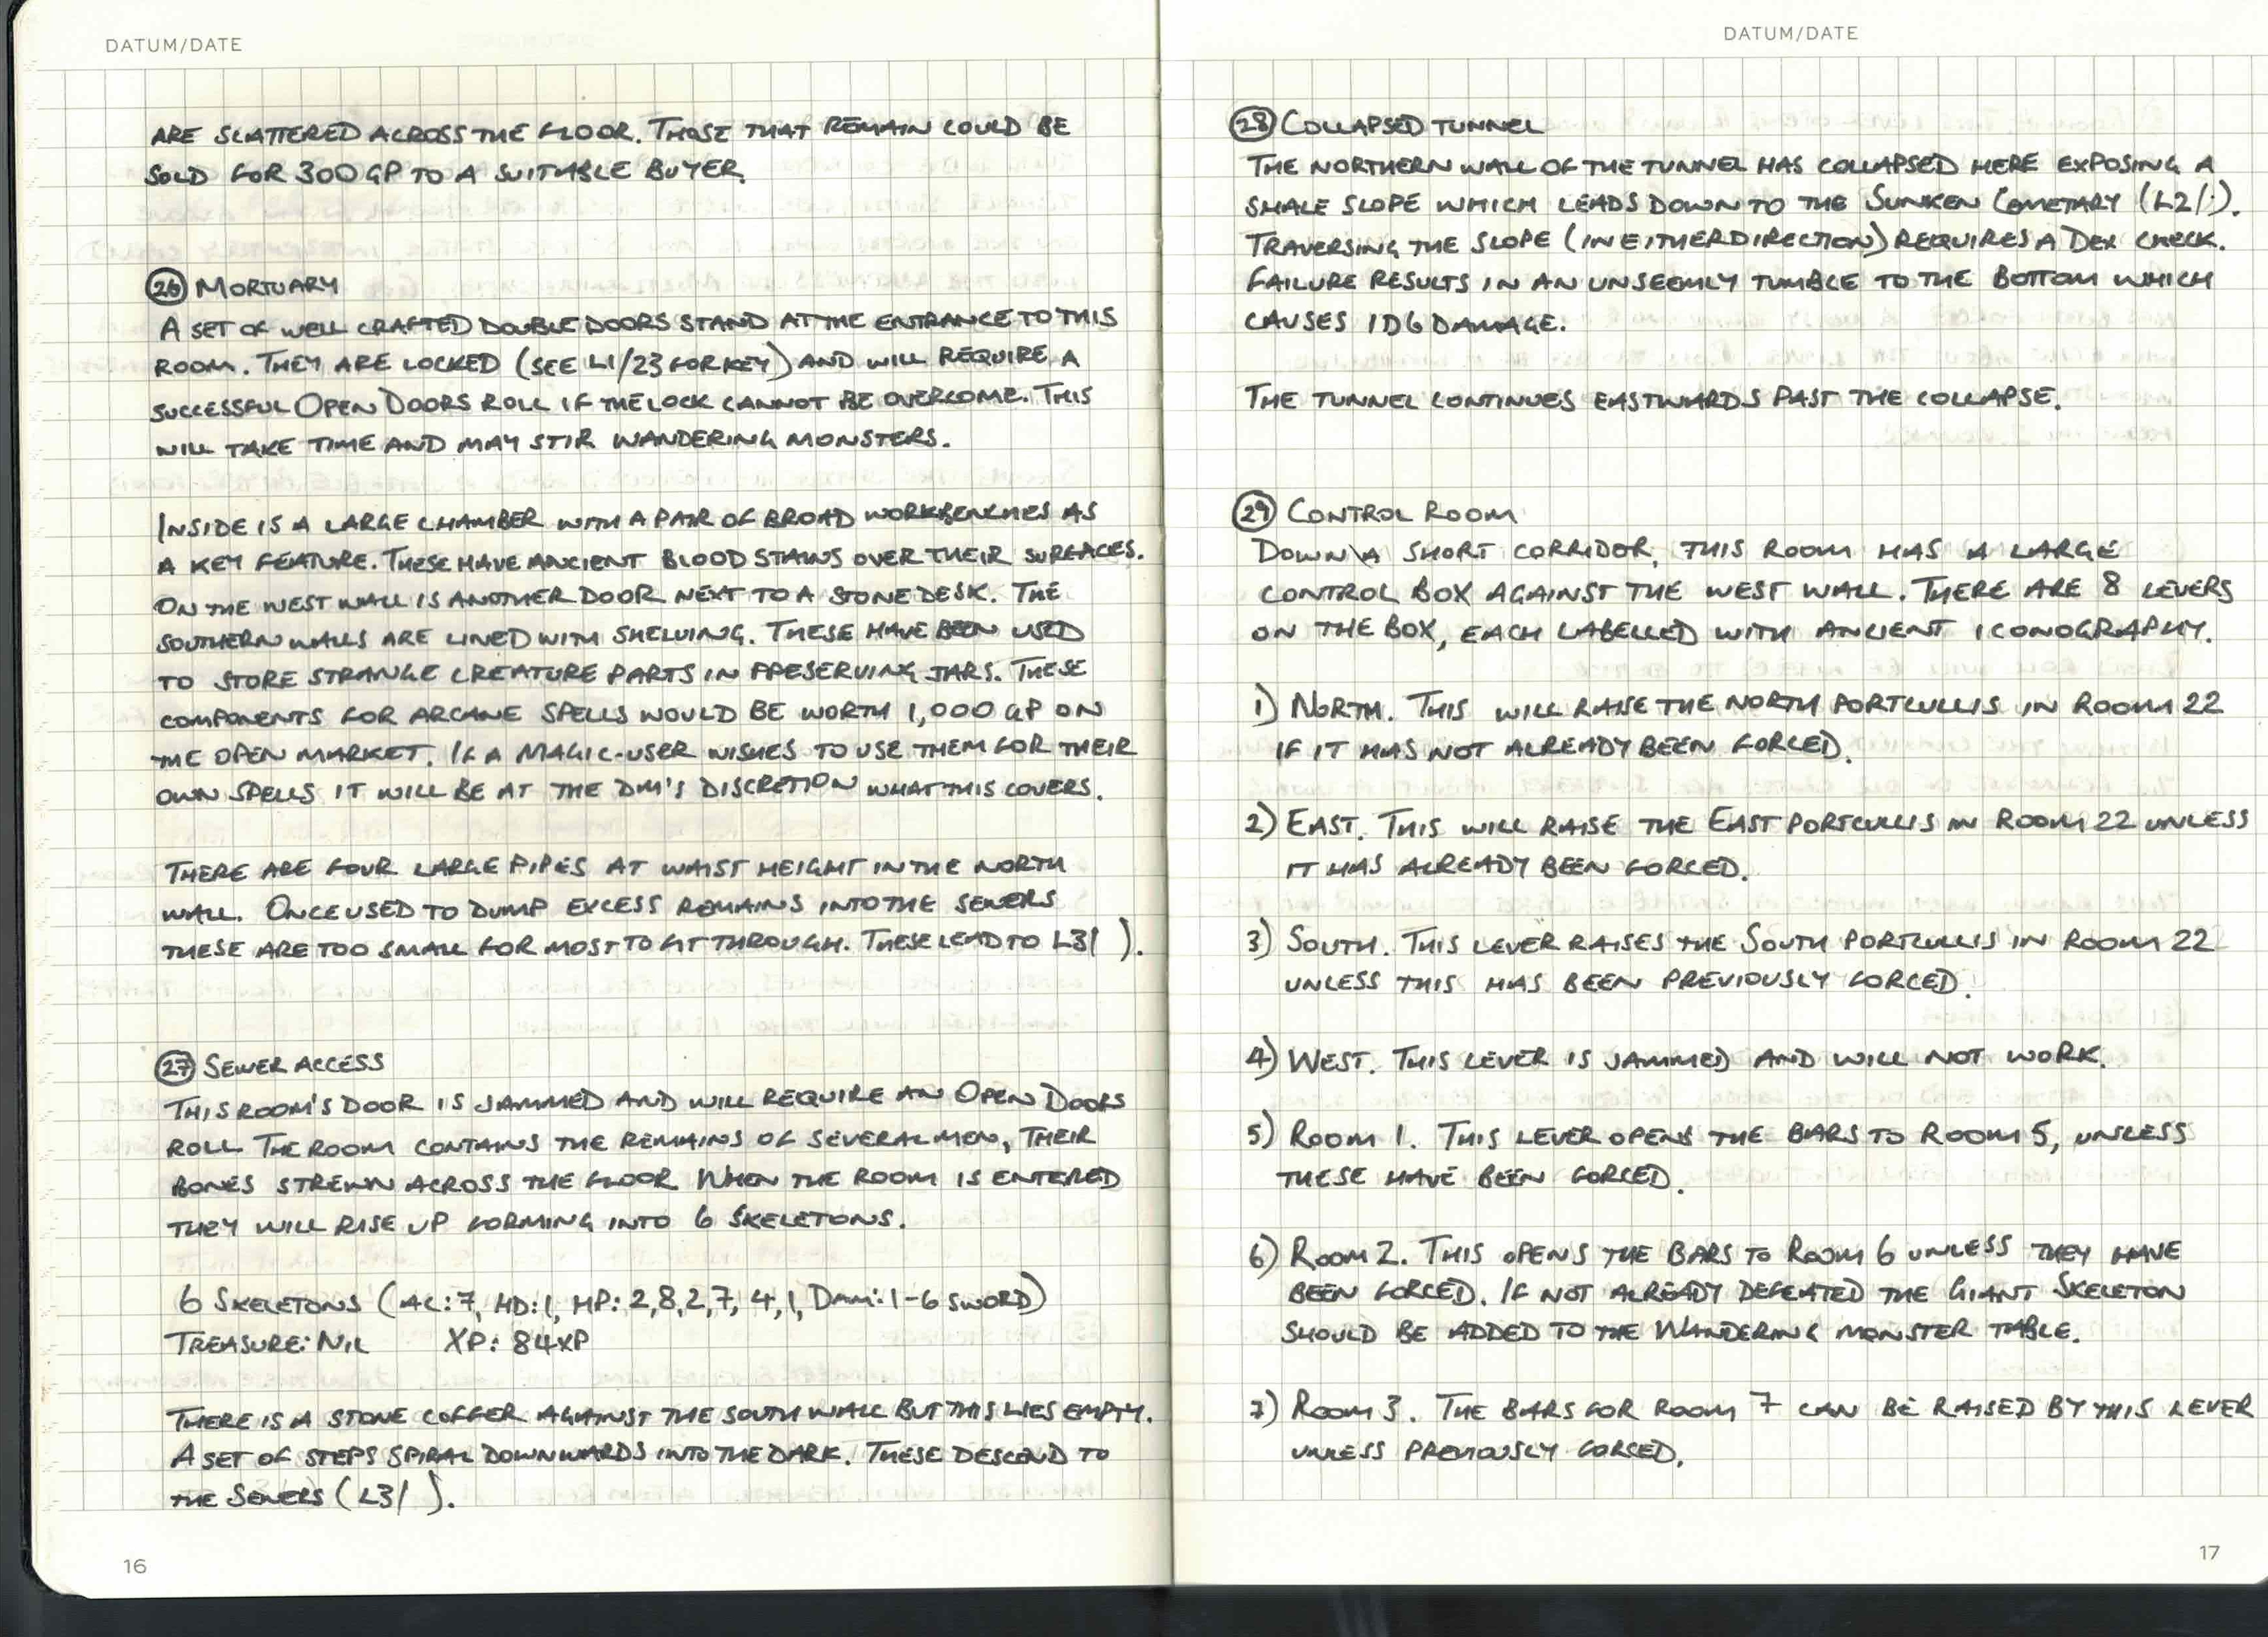 DATUM/DATE
ARE SCATTERED ACROSS THE FLOOR. THOSE THAT REMAIN COULD BE
SOLD FOR 300GP TO A SUITABLE BUYER.
26 MORTUARY
A SET OF WELL CRAFTED DOUBLE DOORS STAND AT THE ENTRANCE TO THIS
ROOM. THEY ARE LOCKED (SEE L1/23 FOR KEY) AND WILL REQUIRE A
SUCCESSFUL OPEN DOORS ROLL IF THE LOCK CANNOT BE OVERCOME. THIS
WILL TAKE TIME AND MAY STIR WANDERING MONSTERS.
INSIDE IS A LARGE CHAMBER WITH A PAIR OF BROAD WORKBENCHES AS
A KEY FEATURE. THESE HAVE ANCIENT BLOOD STAINS OVER THEIR SURFACES.
ON THE WEST WALL IS ANOTHER DOOR NEXT TO A STONE DESK. THE
SOUTHERN WALLS ARE LINED WITH SHELVING. THESE HAVE BEEN USED
TO STORE STRANGE CREATURE PARTS IN PRESERVING JARS. THESE
COMPONENTS FOR ARCANE SPELLS WOULD BE WORTH 1,000 GP ON
THE OPEN MARKET. IF A MAGIC-USER WISHES TO USE THEM FOR THEIR
OWN SPELLS IT WILL BE AT THE DM'S DISCRETION WHAT THIS COVERS.
THERE ARE FOUR LARGE PIPES AT WAIST HEIGHT IN THE NORTH
WALL. ONCE USED TO DUMP EXCESS REMAINS INTO THE SEWERS
THESE ARE TOO SMALL FOR MOST TO FIT THROUGH. THESE LEAD TO L3/ ).
27 SEWER ACCESS
THIS ROOM'S DOOR IS JAMMED AND WILL REQUIRE AN OPEN DOORS
ROLL THE ROOM CONTAINS THE REMAINS OF SEVERAL MEN, THEIR
BONES STREWN ACROSS THE FLOOR WHEN THE ROOM IS ENTERED
THEY WILL RISE UP FORMING INTO 6 SKELETONS.
6 SKELETONS (AC:7, HD:1, HP: 2,8,2,7,4,1, DAM:1-6 SWORD)
TREASURE: NIL XP: 84XP
THERE IS A STONE COFFER AGAINST THE SOUTH WALL BUT THIS LIES EMPTY.
A SET OF STEPS SPIRAL DOWNWARDS INTO THE DARK. THESE DESCEND TO
THE SEWERS (L3/ ).
16
DATUM/DATE
28 COLLAPSED TUNNEL
THE NORTHERN WALL OF THE TUNNEL HAS COLLAPSED HERE EXPOSING A
SHALE SLOPE WHICH LEADS DOWN TO THE SUNKEN CEMETARY (L2/:).
TRAVERSING THE SLOPE (IN EITHER DIRECTION) REQUIRES A DEX CHECK.
FAILURE RESULTS IN AN UNSEEMLY TUMBLE TO THE BOTTOM WHICH
CAUSES 1D6 DAMAGE.
THE TUNNEL CONTINUES EASTWARDS PAST THE COLLAPSE.
29 CONTROL ROOM
DOWN A SHORT CORRIDOR, THIS ROOM HAS A LARGE
CONTROL BOX AGAINST THE WEST WALL. THERE ARE 8 LEVERS
ON THE BOX, EACH LABELLED WITH ANCIENT ICONOGRAPHY.
1) NORTH. THIS WILL RAISE THE NORTH PORTCULLIS IN ROOM 22
IF IT HAS NOT ALREADY BEEN FORCED.
2) EAST. THIS WILL RAISE THE EAST PORTCULLIS IN ROOM 22 UNLESS
IT HAS ALREADY BEEN FORCED.
3) SOUTH. THIS LEVER RAISES THE SOUTH PORTCULLIS IN ROOM 22
UNLESS THIS HAS BEEN PREVIOUSLY FORCED.
4) WEST. THIS LEVER IS JAMMED AND WILL NOT WORK.
5) ROOM 1. THIS LEVER OPENS THE BARS TO ROOM 5, UNLESS
THESE HAVE BEEN FORCED.
6) ROOM 2. THIS OPENS THE BARS TO ROOM 6 UNLESS THEY HAVE
BEEN FORCED. IF NOT ALREADY DEFEATED THE GIANT SKELETON
SHOULD BE ADDED TO THE WANDERING MONSTER TABLE.
7) ROOM 3. THE BARS FOR ROOM 7 CAN BE RAISED BY THIS LEVER
UNLESS PREVIOUSLY FORCED.
17